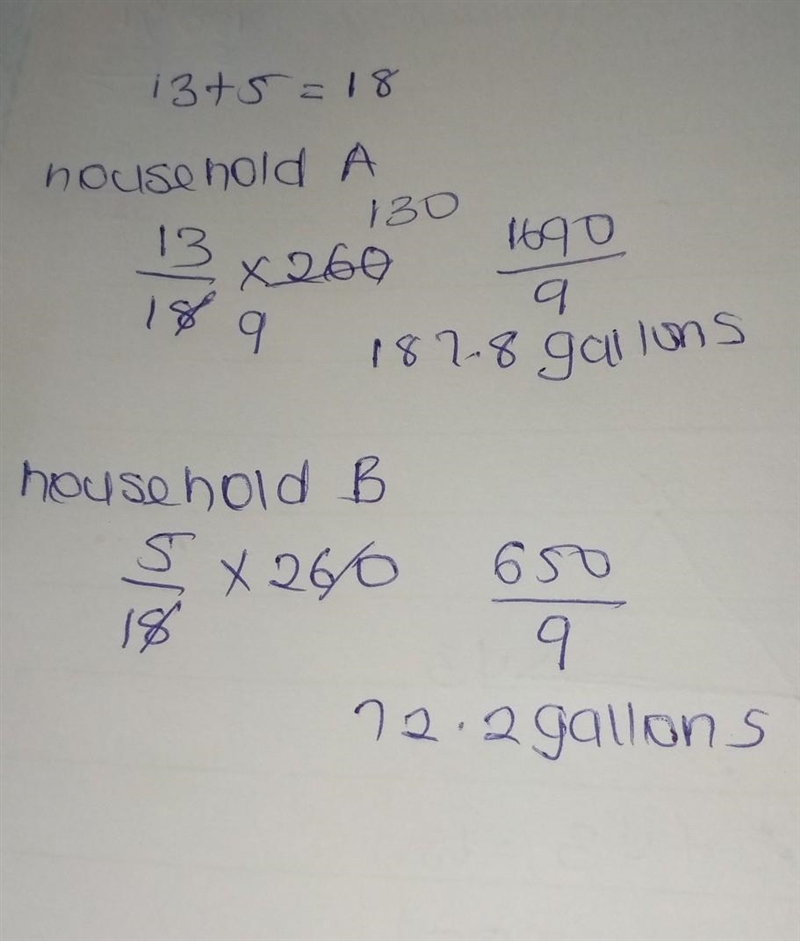 13+5=18
household A
13/18 × 260 130 1690/9
9
187.8 gallons
household B
5/18 × 260 650/9
72.2 gallons